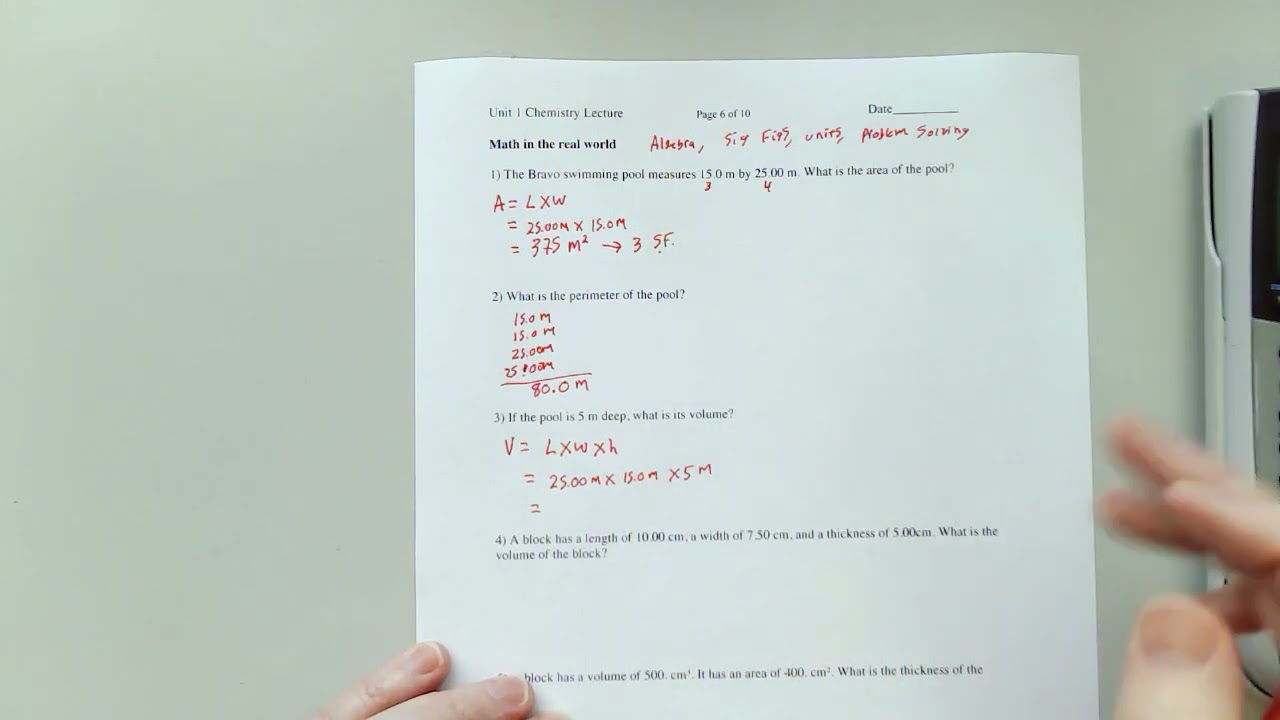 Unit 1 Chemistry Lecture Page 6 of 10 Date_________
Math in the real world Algebra, Sig Figs, units, Problem Solving
1) The Bravo swimming pool measures 15.0 m by 25.00 m. What is the area of the pool?
3 4
A = L X W
= 25.00 M X 15.0 M
= 375 M² → 3 S.F.
2) What is the perimeter of the pool?
15.0 M
15.0 M
25.00M
25.00M
80.0 M
3) If the pool is 5 m deep, what is its volume?
V = L X W X h
= 25.00 M X 15.0 M X 5 M
=
4) A block has a length of 10.00 cm, a width of 7.50 cm, and a thickness of 5.00cm. What is the
volume of the block?
block has a volume of 500. cm³. It has an area of 400. cm². What is the thickness of the